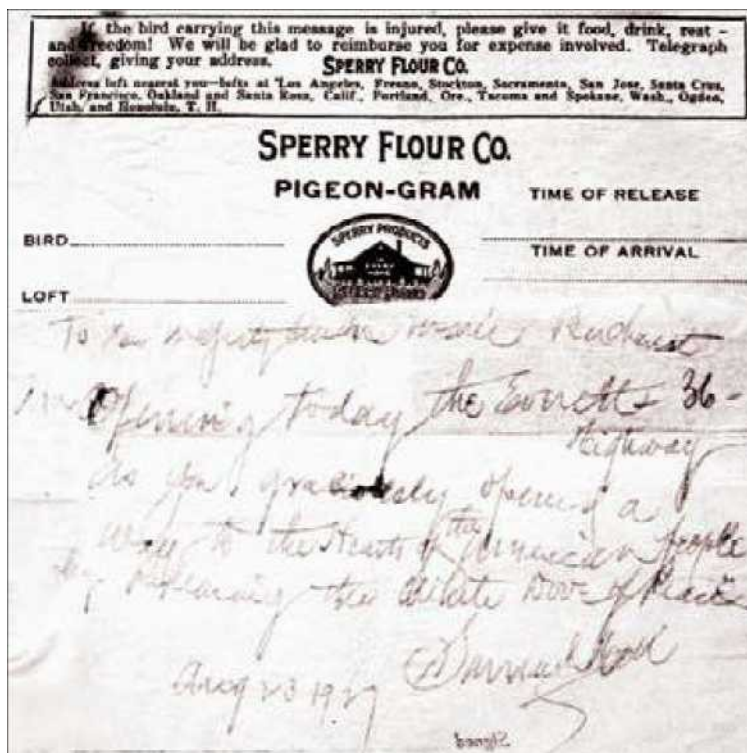 If the bird carrying this message is injured, please give it food, drink, rest -
and freedom! We will be glad to reimburse you for expense involved. Telegraph
collect, giving your address. SPERRY FLOUR CO.
Address loft nearest you—lofts at Los Angeles, Fresno, Stockton, Sacramento, San Jose, Santa Cruz,
San Francisco, Oakland and Santa Rosa, Calif., Portland, Ore., Tacoma and Spokane, Wash., Ogden,
Utah, and Honolulu, T. H.
SPERRY FLOUR CO.
PIGEON-GRAM
TIME OF RELEASE
BIRD
SPERRY PRODUCTS
TIME OF ARRIVAL
LOFT
To
Opening today the Everett 36-
Highway
as you graciously opening a
way to the Hearts of the American people
by releasing the White Dove of Peace
Aug 23 19